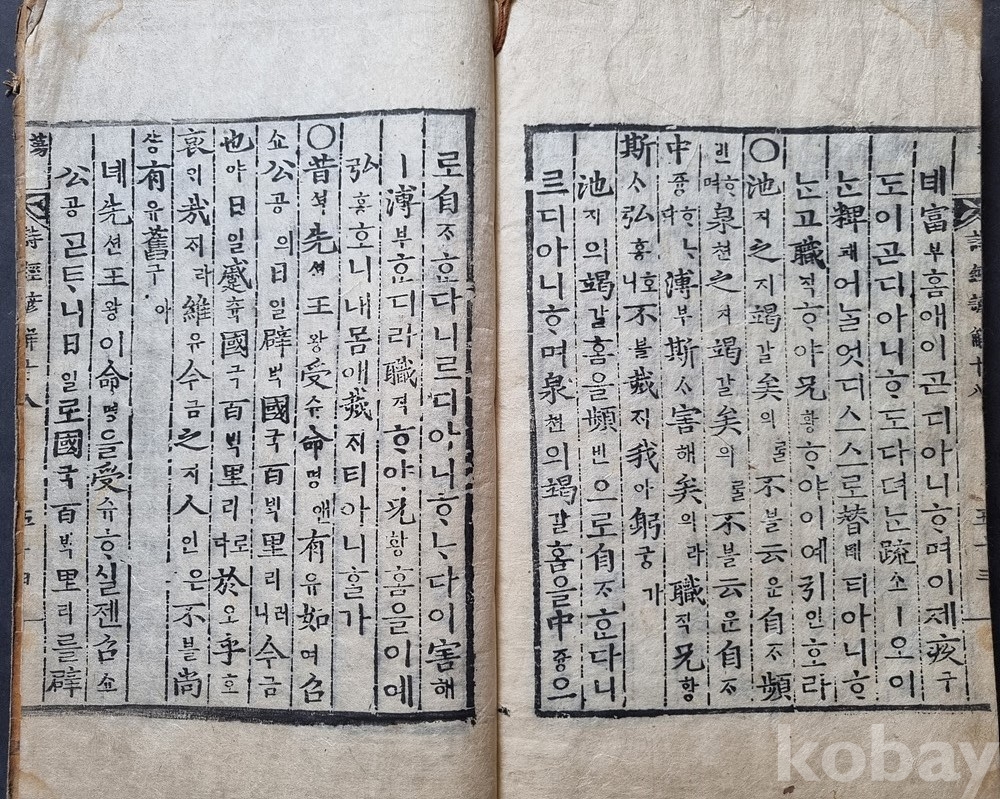 녜富부홈애이곧디아니ᄒᆞ며이제疚구
도이곧디아니ᄒᆞ도다뎌ᄂᆞᆫ疏소ㅣ오이
ᄂᆞᆫ粺패어ᄂᆞᆯ엇디스스로替톄티아니ᄒᆞ
ᄂᆞᆫ고職직ᄒᆞ야兄황ᄒᆞ야이예引인ᄒᆞ라
○池지之지竭갈矣의ᄅᆞᆯ不블云운自ᄌᆞ頻
빈ᄒᆞ며泉쳔之지竭갈矣의ᄅᆞᆯ不블云운自ᄌᆞ
中즁ᄒᆞᄂᆞ다溥부斯ᄉᆞ害해矣의라職직兄황
斯ᄉᆞ弘홍호니不블烖ᄌᆡ我아躬궁가
池지의竭갈홈을頻빈으로自ᄌᆞᄒᆞᆫ다니
르디아니ᄒᆞ며泉쳔의竭갈홈을中즁으
詩經諺解十八
五十三
로自ᄌᆞᄒᆞᆫ다니르디아니ᄒᆞᄂᆞ다이害해
ㅣ溥부ᄒᆞᆫ디라職직ᄒᆞ야兄황홈을이예
弘홍호니내몸애烖ᄌᆡ티아니ᄒᆞᆯ가
○昔셕先션王왕受슈命명앤有유如여召
쇼公공의日일辟벽國국百ᄇᆡᆨ里리러니今금
也야日일蹙츅國국百ᄇᆡᆨ里리로다於오乎호
哀ᄋᆡ哉ᄌᆡ라維유今금之지人인은不블尙
샹有유舊구아
녜先션王왕이命명을受슈ᄒᆞ실젠召쇼
公공ᄀᆞᆮᄐᆞ니日일로國국百ᄇᆡᆨ里리를辟
詩經諺解十八